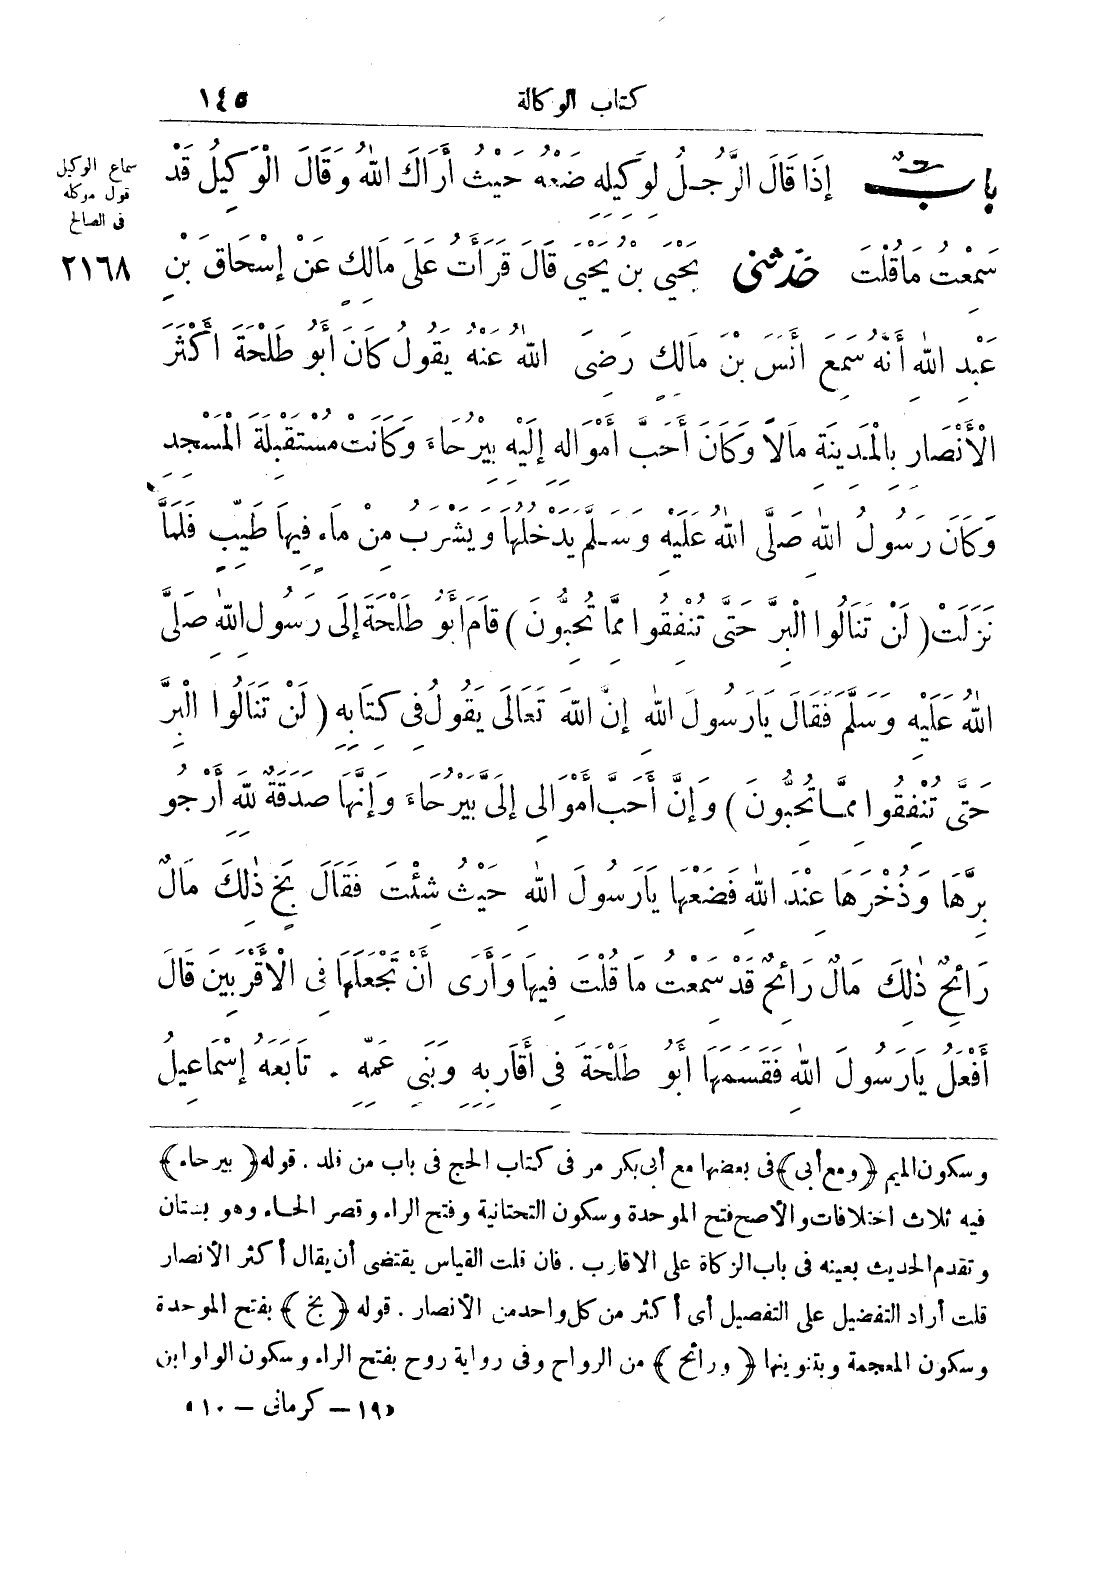 كتاب الوكالة ١٤٥
سماع الوكيل
قول موكله
فى الصالح
٢١٦٨
بابٌ إِذَا قَالَ الرَّجُلُ لِوَكِيلِهِ ضَعْهُ حَيْثُ أَرَاكَ اللّٰهُ وَقَالَ الْوَكِيلُ قَدْ
سَمِعْتُ مَا قُلْتَ حَدَّثَنِى يَحْيَى بْنُ يَحْيَى قَالَ قَرَأْتُ عَلَى مَالِكٍ عَنْ إِسْحَاقَ بْنِ
عَبْدِ اللّٰهِ أَنَّهُ سَمِعَ أَنَسَ بْنَ مَالِكٍ رَضِىَ اللّٰهُ عَنْهُ يَقُولُ كَانَ أَبُو طَلْحَةَ أَكْثَرَ
الْأَنْصَارِ بِالْمَدِينَةِ مَالًا وَكَانَ أَحَبَّ أَمْوَالِهِ إِلَيْهِ بِيْرُحَاءَ وَكَانَتْ مُسْتَقْبِلَةَ الْمَسْجِدِ
وَكَانَ رَسُولُ اللّٰهِ صَلَّى اللّٰهُ عَلَيْهِ وَسَلَّمَ يَدْخُلُهَا وَيَشْرَبُ مِنْ مَاءٍ فِيهَا طَيِّبٍ فَلَمَّا
نَزَلَتْ ( لَنْ تَنَالُوا الْبِرَّ حَتَّى تُنْفِقُوا مِمَّا تُحِبُّونَ ) قَامَ أَبُو طَلْحَةَ إِلَى رَسُولِ اللّٰهِ صَلَّى
اللّٰهُ عَلَيْهِ وَسَلَّمَ فَقَالَ يَارَسُولَ اللّٰهِ إِنَّ اللّٰهَ تَعَالَى يَقُولُ فِى كِتَابِهِ ( لَنْ تَنَالُوا الْبِرَّ
حَتَّى تُنْفِقُوا مِمَّا تُحِبُّونَ ) وَإِنَّ أَحَبَّ أَمْوَالِى إِلَىَّ بَيْرُحَاءَ وَإِنَّهَا صَدَقَةٌ لِلّٰهِ أَرْجُو
بِرَّهَا وَذُخْرَهَا عِنْدَ اللّٰهِ فَضَعْهَا يَارَسُولَ اللّٰهِ حَيْثُ شِئْتَ فَقَالَ بَخٍ ذٰلِكَ مَالٌ
رَائِحٌ ذٰلِكَ مَالٌ رَائِحٌ قَدْ سَمِعْتُ مَا قُلْتَ فِيهَا وَأَرَى أَنْ تَجْعَلَهَا فِى الْأَقْرَبِينَ قَالَ
أَفْعَلُ يَارَسُولَ اللّٰهِ فَقَسَمَهَا أَبُو طَلْحَةَ فِى أَقَارِبِهِ وَبَنِى عَمِّهِ . تَابَعَهُ إِسْمَاعِيلُ
وسكون الميم ﴿ومع أبى﴾ فى بعضها مع أبى بكر مر فى كتاب الحج فى باب من قلد . قوله ﴿بيرحاء﴾
فيه ثلاث اختلافات والأصح فتح الموحدة وسكون التحتانية وفتح الراء وقصر الحاء وهو بستان
وتقدم الحديث بعينه فى باب الزكاة على الاقارب . فان قلت القياس يقتضى أن يقال أكثر الأنصار
قلت أراد التفضيل على التفصيل أى أكثر من كل واحد من الأنصار . قوله ﴿بخ﴾ بفتح الموحدة
وسكون المعجمة وبتنوينها ﴿ورائح﴾ من الرواح وفى رواية روح بفتح الراء وسكون الواو ابن
«١٩ – كرمانى – ١٠»